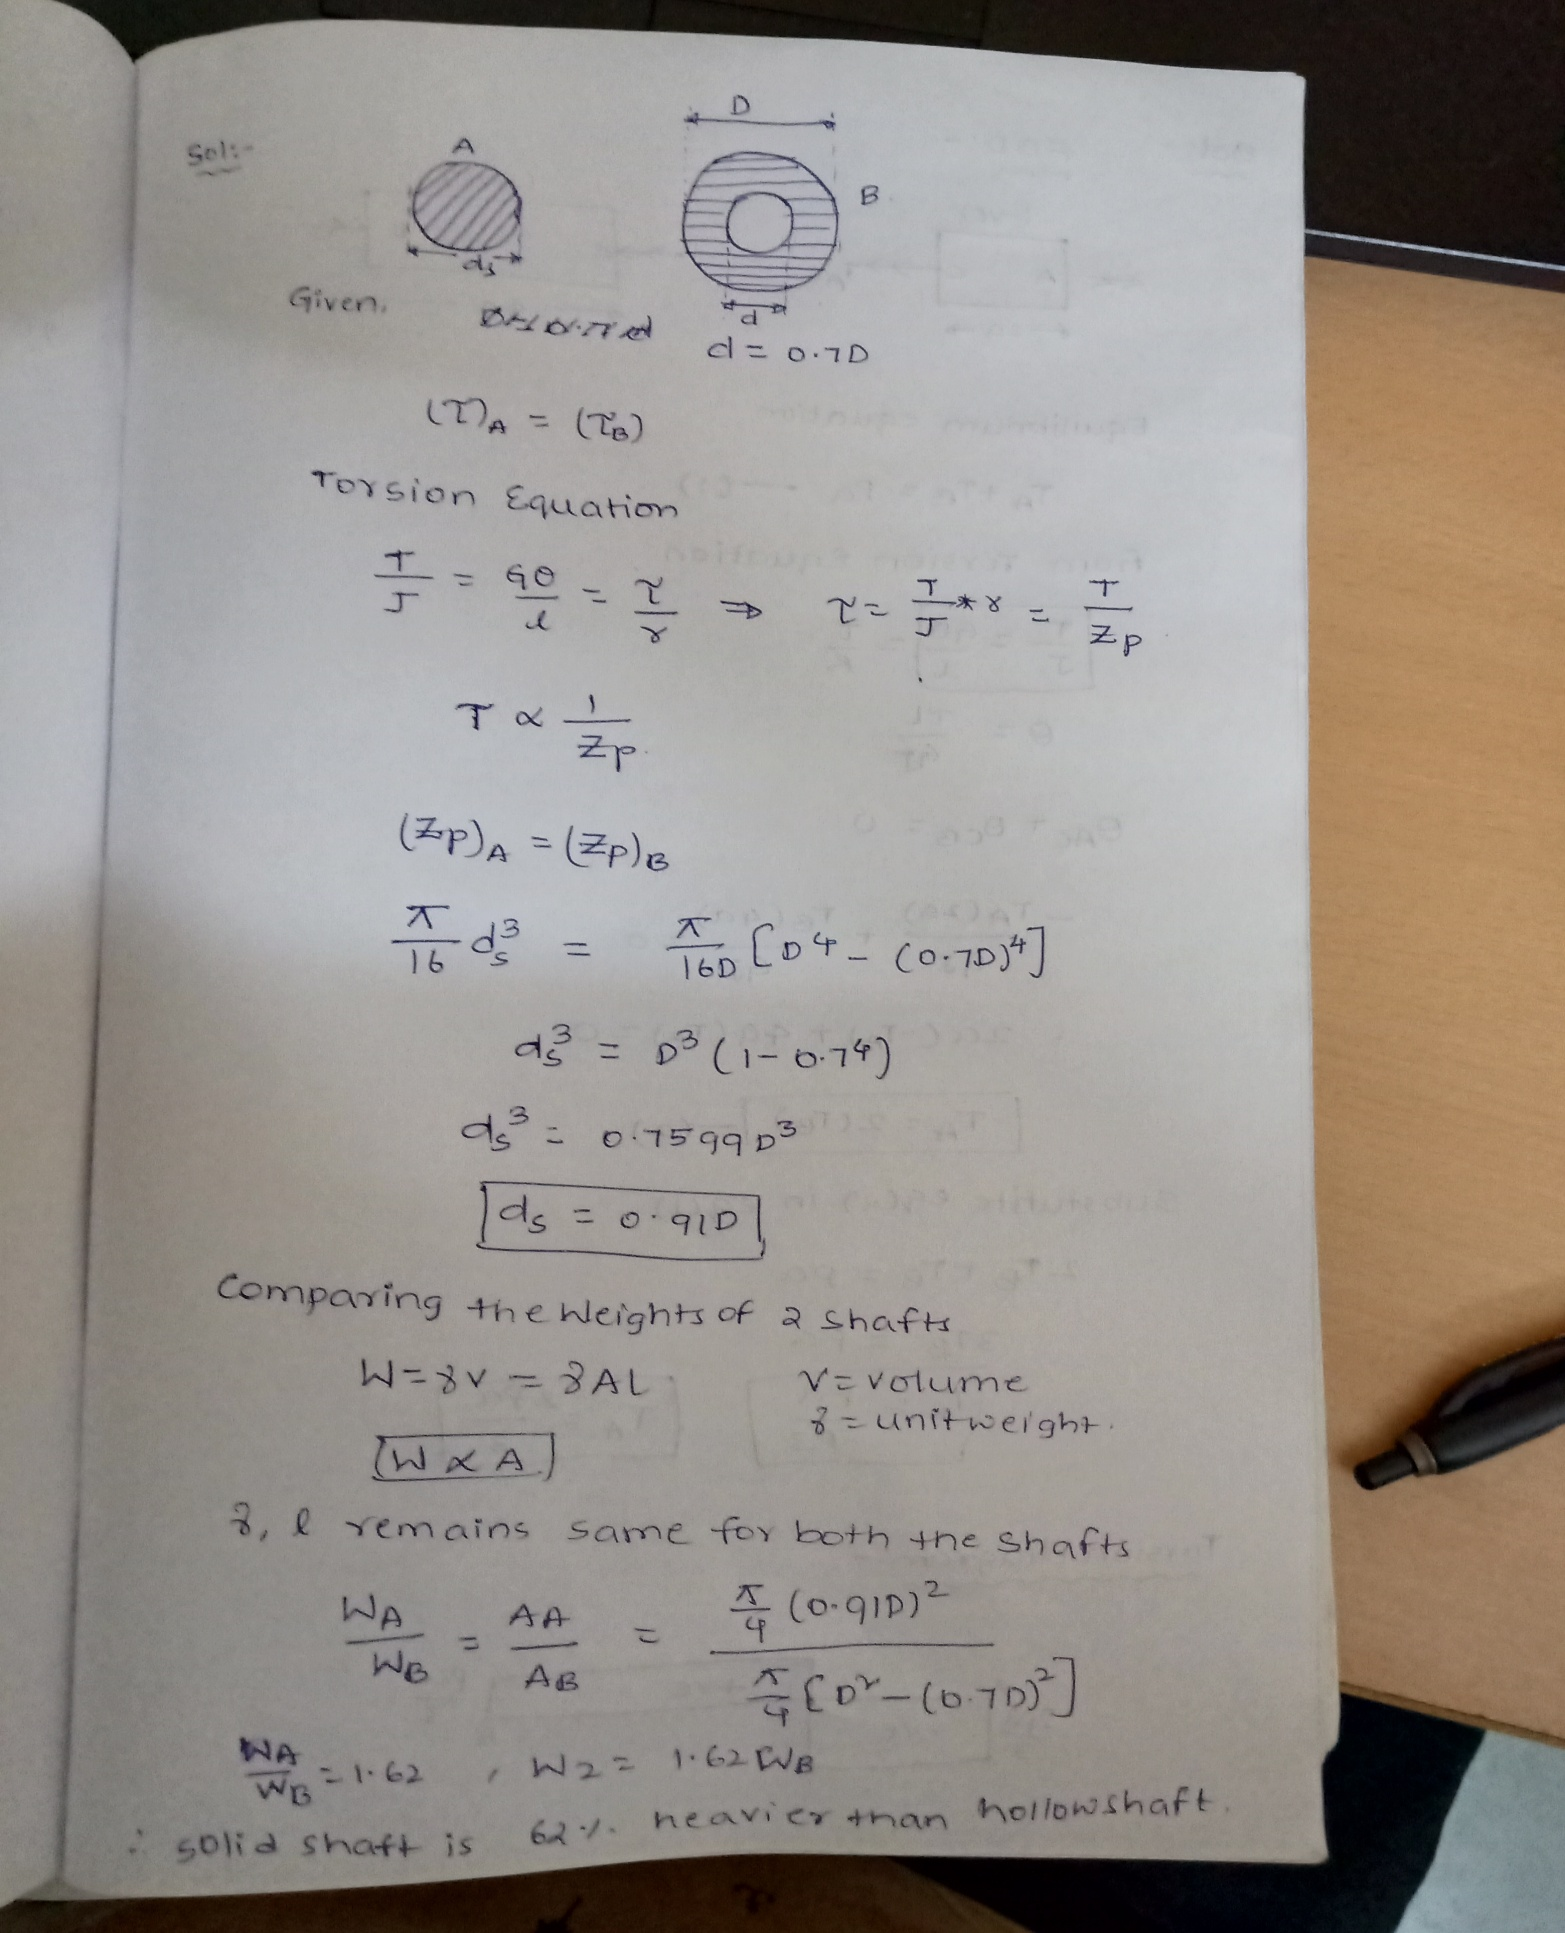 Sol:-
A
D
B
ds
d
Given,
d = 0.7D
(τ)A = (τB)
Torsion Equation
T/J = Gθ/l = τ/r ⇒ τ = T/J * r = T/Zp
T ∝ 1/Zp
(Zp)A = (Zp)B
π/16 ds³ = π/16D [D⁴ - (0.7D)⁴]
ds³ = D³ (1 - 0.7⁴)
ds³ = 0.7599 D³
ds = 0.91D
Comparing the Weights of 2 shafts
W = γV = γAL V = volume
γ = unit weight.
W ∝ A
γ, l remains same for both the shafts
WA/WB = AA/AB = π/4 (0.91D)² / π/4 [D² - (0.7D)²]
WA/WB = 1.62 , W2 = 1.62 WB
∴ solid shaft is 62 %. heavier than hollowshaft.